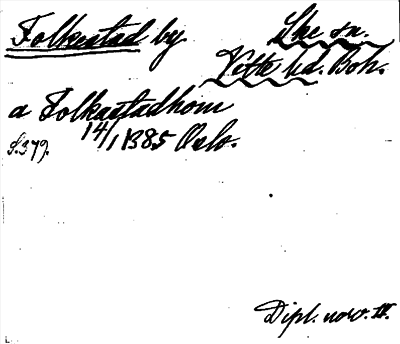 Folkestad by Ske sn.
Vette hd. Boh.
a Folkastadhom
14/1 1385 Oslo.
s. 379.
Dipl. norv. IV.